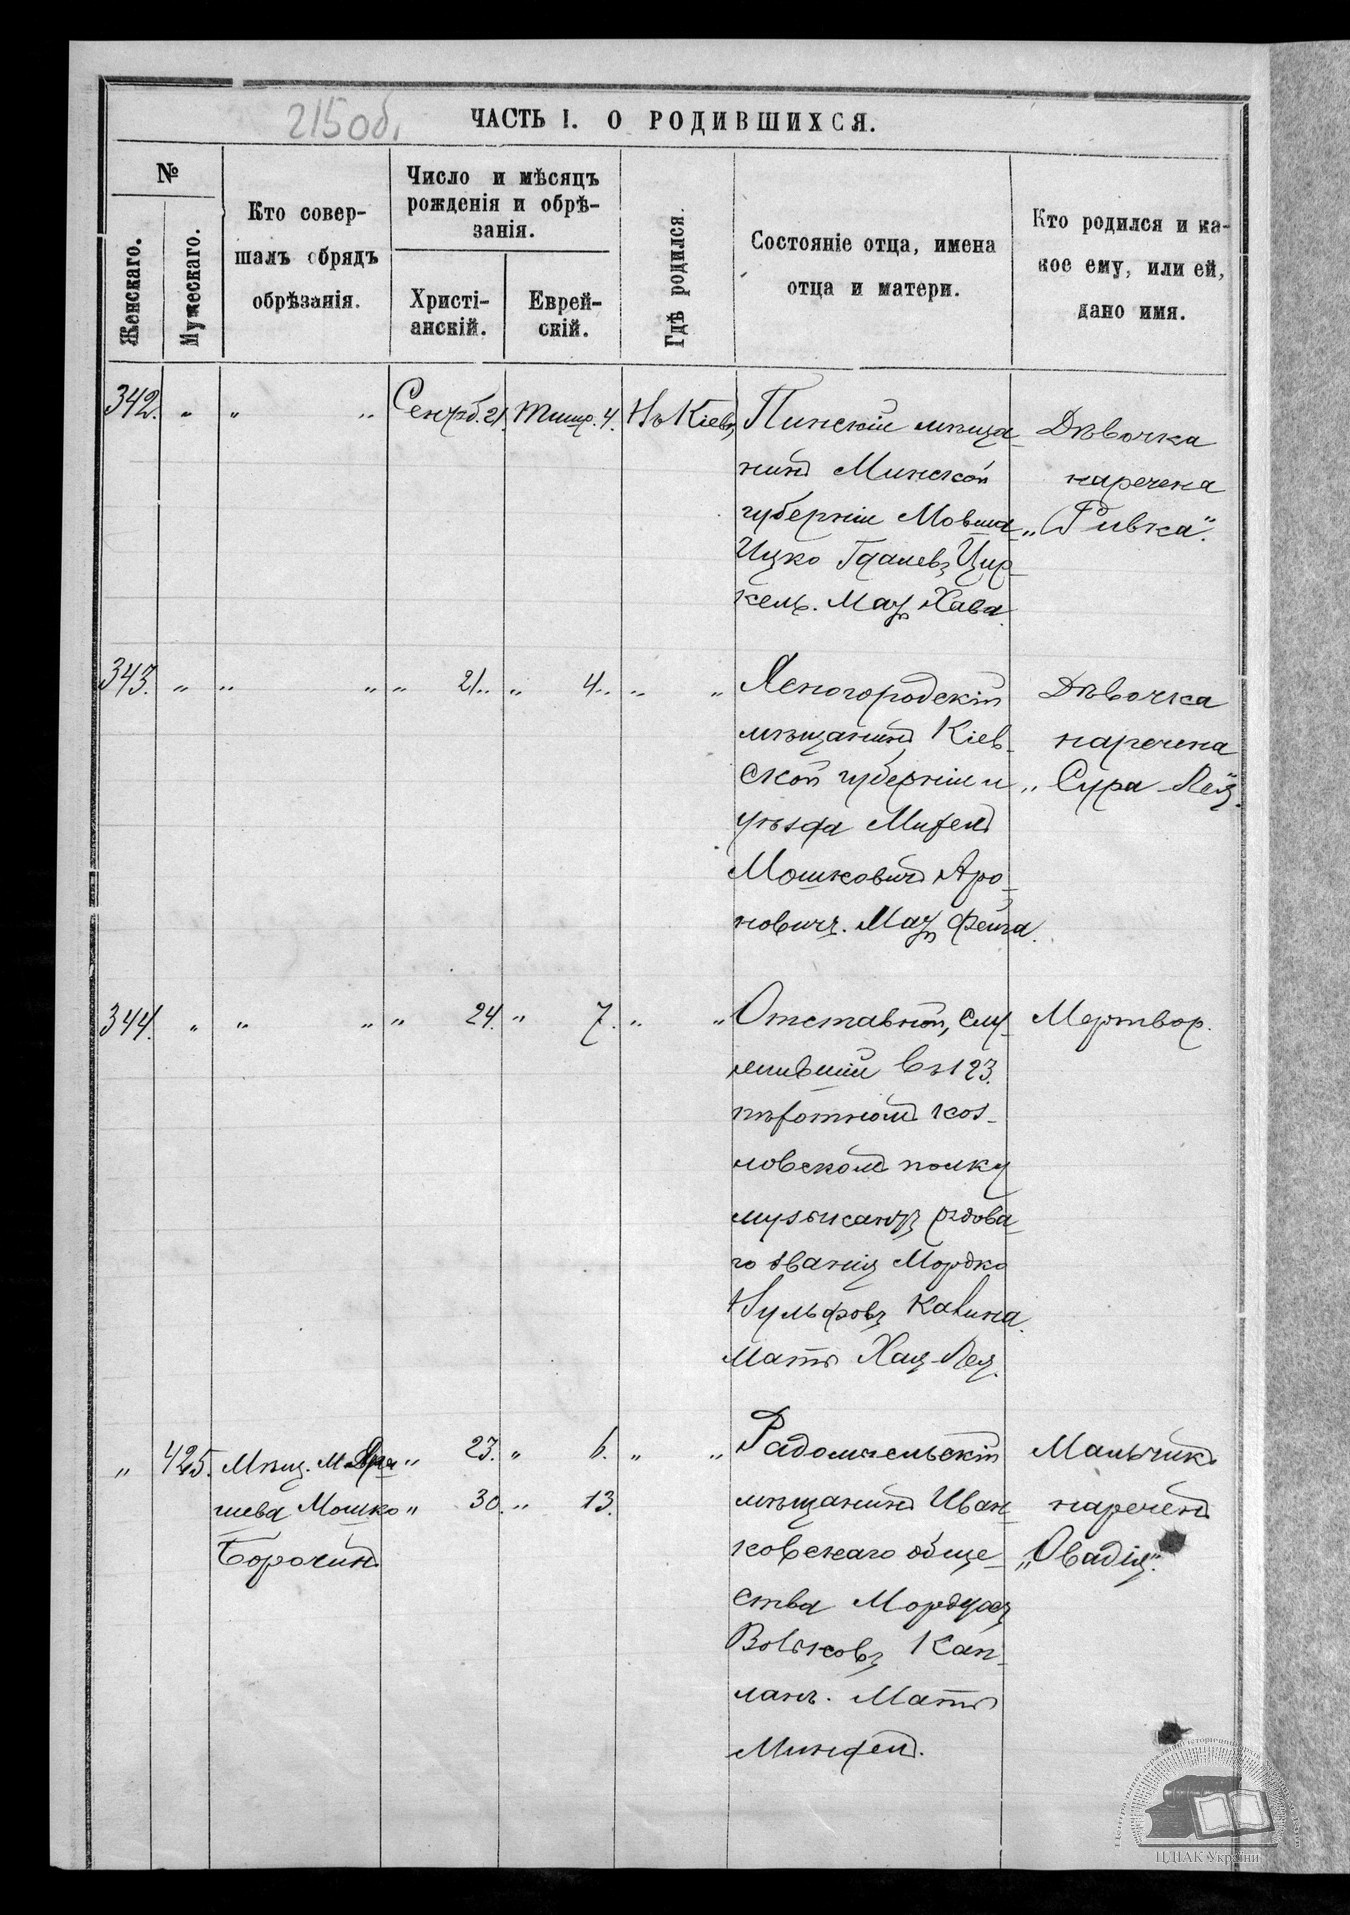 215об.
ЧАСТЬ I. О РОДИВШИХСЯ.
№
Женскаго.
Мужескаго.
Кто совер-
шалъ обрядъ
обрѣзанія.
Число и мѣсяцъ
рожденія и обрѣ-
занія.
Христі-
анскій.
Еврей-
скій.
Гдѣ родился.
Состояніе отца, имена
отца и матери.
Кто родился и ка-
кое ему, или ей,
дано имя.
342. " " " Сентяб. 21. Тишр. 4. Въ Кіевѣ
Пинскій мѣща-
нинъ Минской
губерніи Мовша
Ицко Гдалевъ Цир-
кель. Мать Хава.
Дѣвочка
наречена
„Ривка".
343. " " " " 21. " 4. " "
Ясногородскій
мѣщанинъ Кіев-
ской губерніи и
уѣзда Михель
Мошковичъ Аро-
новичъ. Мать Фейга.
Дѣвочка
наречена
„Сура-Лея".
344. " " " " 24. " 7. " "
Отставной, слу-
жившій въ 123.
пѣхотномъ коз-
ловскомъ полку
музыкантъ рядова-
го званія Мордко
Вульфовъ Калина.
Мать Хая-Лея.
Мертвор.
" 425. Мѣщ. М.
шева Мошко
" 23. " 6. " "
" 30. " 13.
Радомысльскій
мѣщанинъ Иван-
ковскаго обще-
ства Мордухъ
Вольковъ Кап-
ланъ. Мать
Миндель.
Мальчикъ
нареченъ
„Овадія".
ЦДІАК України